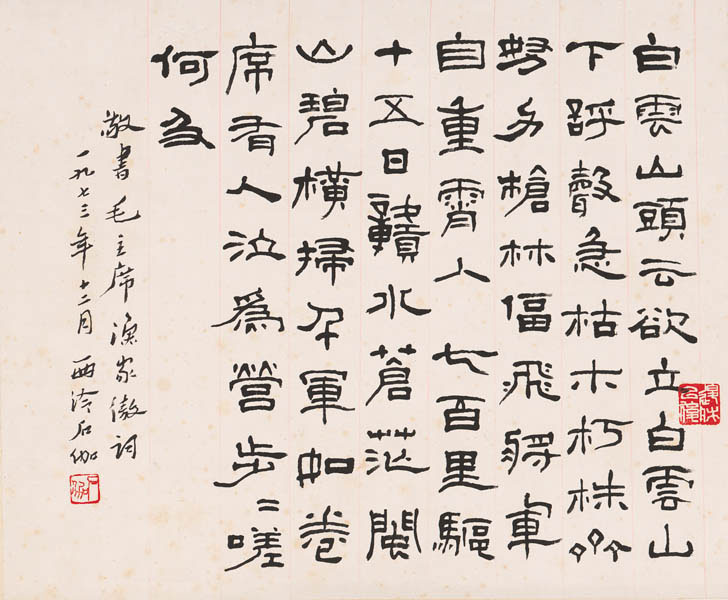 白雲山頭云欲立白雲山
下呼聲急枯木朽株齊
努力槍林偪飛將軍
自重霄入七百里驅
十五日贛水蒼茫閩
山碧橫掃千軍如卷
席有人泣為營步〻嗟
何及
敬書毛主席漁家傲詞
一九七三年十二月西泠石伽